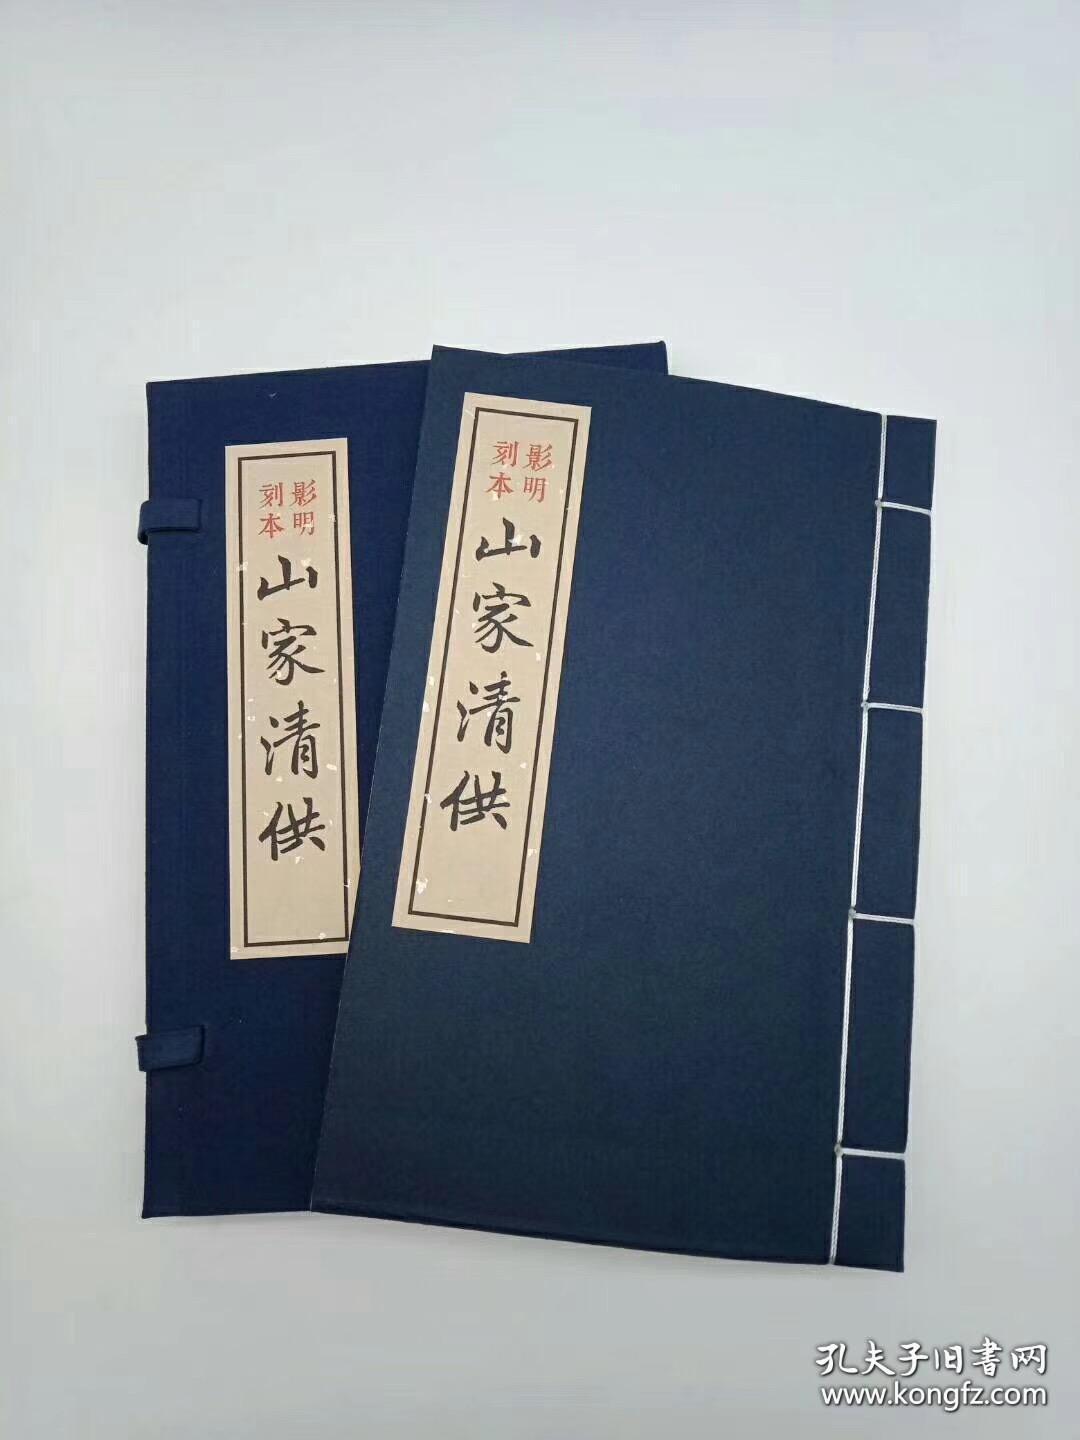 影明
刻本
山家清供
影明
刻本
山家清供
孔夫子旧书网
www.kongfz.com